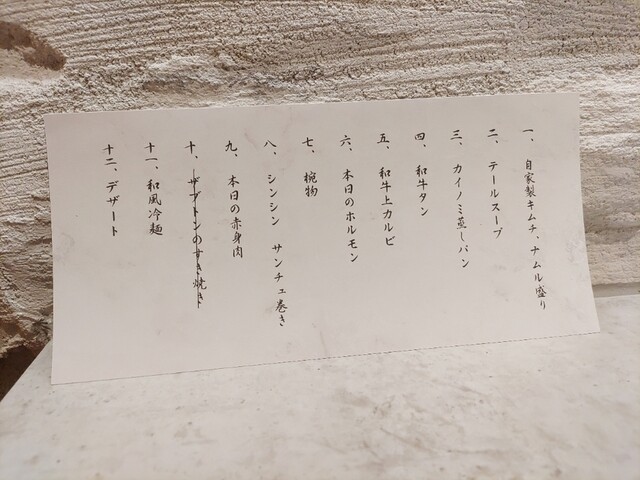 一、自家製キムチ、ナムル盛り
二、テールスープ
三、カイノミ蒸しパン
四、和牛タン
五、和牛上カルビ
六、本日のホルモン
七、椀物
八、シンシン サンチュ巻き
九、本日の赤身肉
十、ザブトンのすき焼き
十一、和風冷麺
十二、デザート